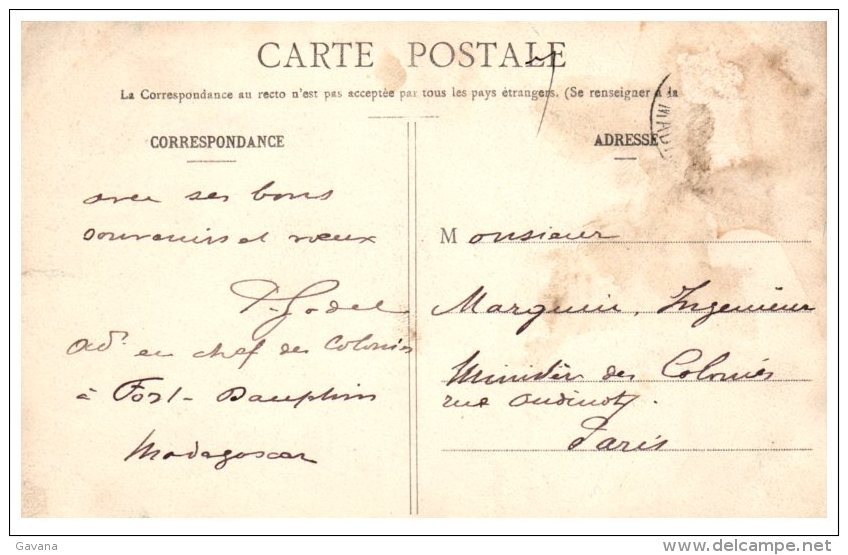 CARTE POSTALE
La Correspondance au recto n'est pas acceptée par tous les pays étrangers. (Se renseigner à la
CORRESPONDANCE
avec ses bons
souvenirs et vœux
Godel
Adr en chef des Colonies
à Fort-Dauphin
Madagascar
ADRESSE
Monsieur
Marguin, Ingénieur
Ministère des Colonies
rue Oudinot
Paris
Gavana
delcampe.net